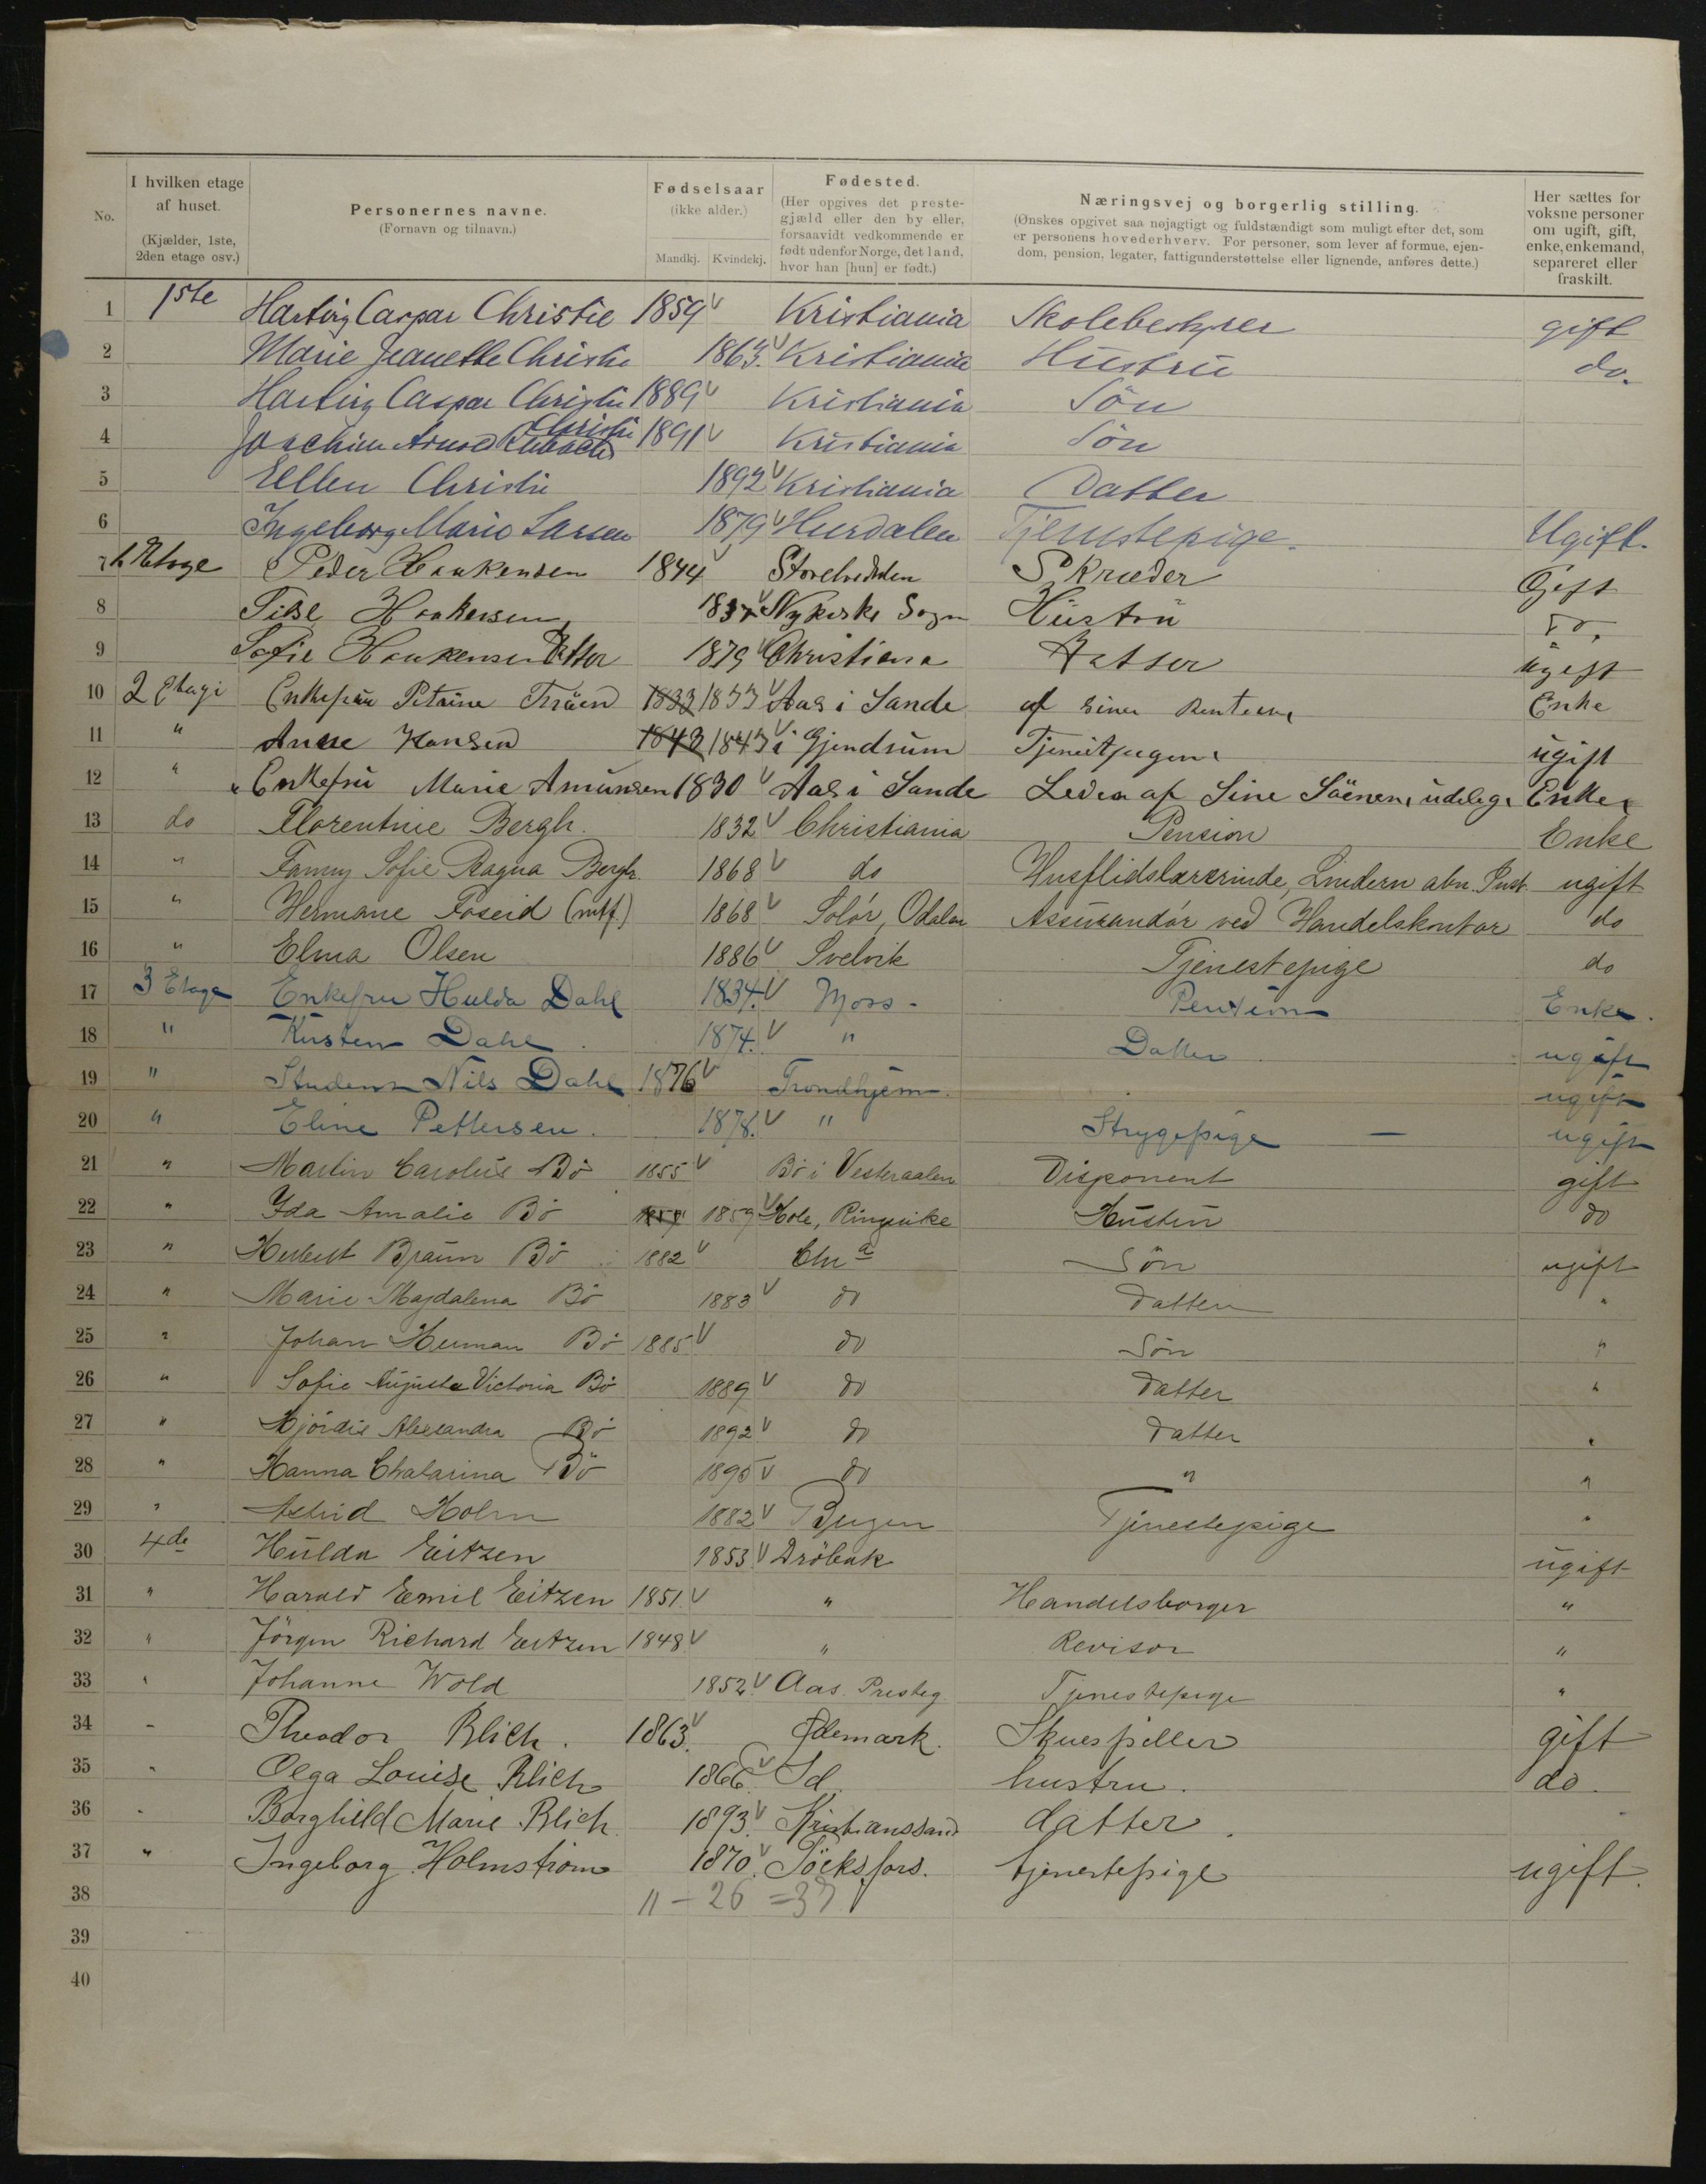 No.
I hvilken etage
af huset.
(Kjælder, 1ste,
2den etage osv.)
Personernes navne.
(Fornavn og tilnavn.)
Fødselsaar
(ikke alder.)
Mandkj. Kvindekj.
Fødested.
(Her opgives det preste-
gjæld eller den by eller,
forsaavidt vedkommende er
født udenfor Norge, det land,
hvor han [hun] er født.)
Næringsvej og borgerlig stilling.
(Ønskes opgivet saa nøjagtigt og fuldstændigt som muligt efter det, som
er personens hovederhverv. For personer, som lever af formue, ejen-
dom, pension, legater, fattigunderstøttelse eller lignende, anføres dette.)
Her sættes for
voksne personer
om ugift, gift,
enke, enkemand,
separeret eller
fraskilt.
1 1ste Hartvig Caspar Christie 1859 Kristiania Skolebestyrer gift
2 Marie Jeanette Christie 1863. Kristiania Hustru do.
3 Hartvig Caspar Christie 1889 Kristiania Søn
4 Joachim Christie 1891 Kristiania Søn
5 Ellen Christie 1892 Kristiania Datter
6 Ingeborg Marie Larsen 1879 Hurdalen Tjenestepige. Ugift.
7 1 Etage Peder Haakensen 1844 Skræder Gift
8 Haakensen 1837 Nykirke Sogn Hustru Do.
9 Sofie Haakensen 1879 Christiania Datter ugift
10 2 Etage Enkefru Petrine 1833 1833 Aas i Sande af sine Renter Enke
11 " Anne Hansen 1843 1843 i Gjerdrum ugift
12 " Enkefru Marie Amunsen 1830 Aas i Sande Leder af Sine Enke
13 do Florentine Bergh. 1832 Christiania Pension Enke
14 " Fanny Sofie Ragna Bergh. 1868 do Husflidslærerinde, Lindern abn. Inst. ugift
15 " Hermane Foseid 1868 Solør, Odalen Assurandør ved Handelskontor do
16 " Elma Olsen 1886 Svelvik Tjenestepige do
17 3 Etage Enkefru Hulda Dahl 1834. Moss. Pension Enke.
18 " Kirsten Dahl 1874. " Datter ugift
19 " Student Nils Dahl 1876 Trondhjem. ugift
20 " Eline Pettersen. 1878. " Strygepige — ugift
21 " Martin Carolus Bö 1855 Bö i Vesteraalen Disponent gift
22 " Ida Amalie Bö 1859 1859 Hole, Ringerike Hustru do
23 " Herbert Braun Bö 1882 Chra Søn ugift
24 " Marie Magdalena Bö 1883 do datter "
25 " Johan Herman Bö 1885 do Søn "
26 " Sofie Augusta Victoria Bö 1889 do datter "
27 " Hjørdis Alexandra Bö 1892 do datter "
28 " Hanna Chatarina Bö 1895 do " "
29 " Astrid Holm 1882 Bergen Tjenestepige "
30 4de Hulda Eitzen 1853 Drøbak ugift
31 " Harald Eemil Eitzen 1851 " Handelsborger "
32 " Jörgen Richard Eitzen 1848 " Revisor "
33 " Johanne Wold 1852 Aas. Presteg. Tjenestepige "
34 " Theodor Blich. 1863. Ødemark. Skuespiller gift
35 " Olga Louise Blich 1866 Id. hustru. do.
36 " Borghild Marie Blich 1893. Kristianssand datter.
37 " Ingeborg Holmström 1870. Töcksfors. tjenestepige ugift.
38 11 – 26 = 37
39
40